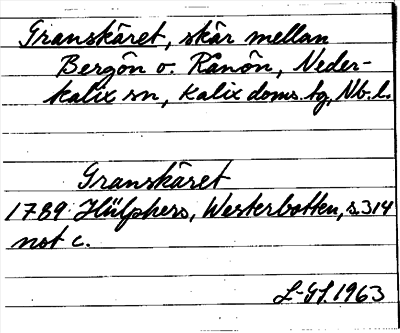 Granskäret, skär mellan
Bergön o. Rånön, Neder-
kalix sn, Kalix doms. tg, Nb. l.
Granskäret
1789 Hülphers, Westerbotten, s. 314
not c.
L-GS. 1963